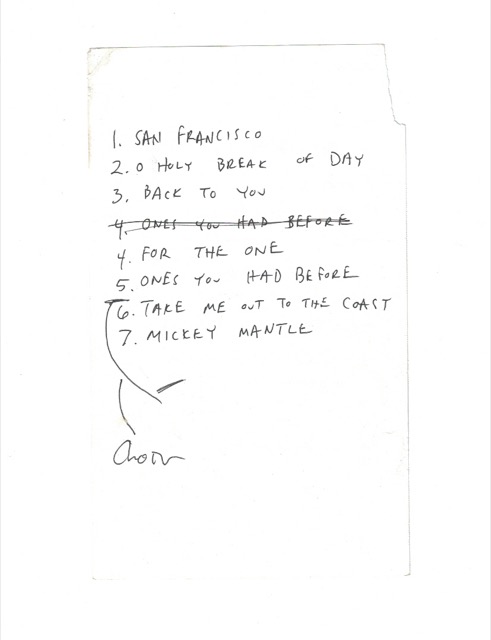 1. SAN FRANCISCO
2. O HOLY BREAK OF DAY
3. BACK TO YOU
4. ONES YOU HAD BEFORE
4. FOR THE ONE
5. ONES YOU HAD BEFORE
6. TAKE ME OUT TO THE COAST
7. MICKEY MANTLE